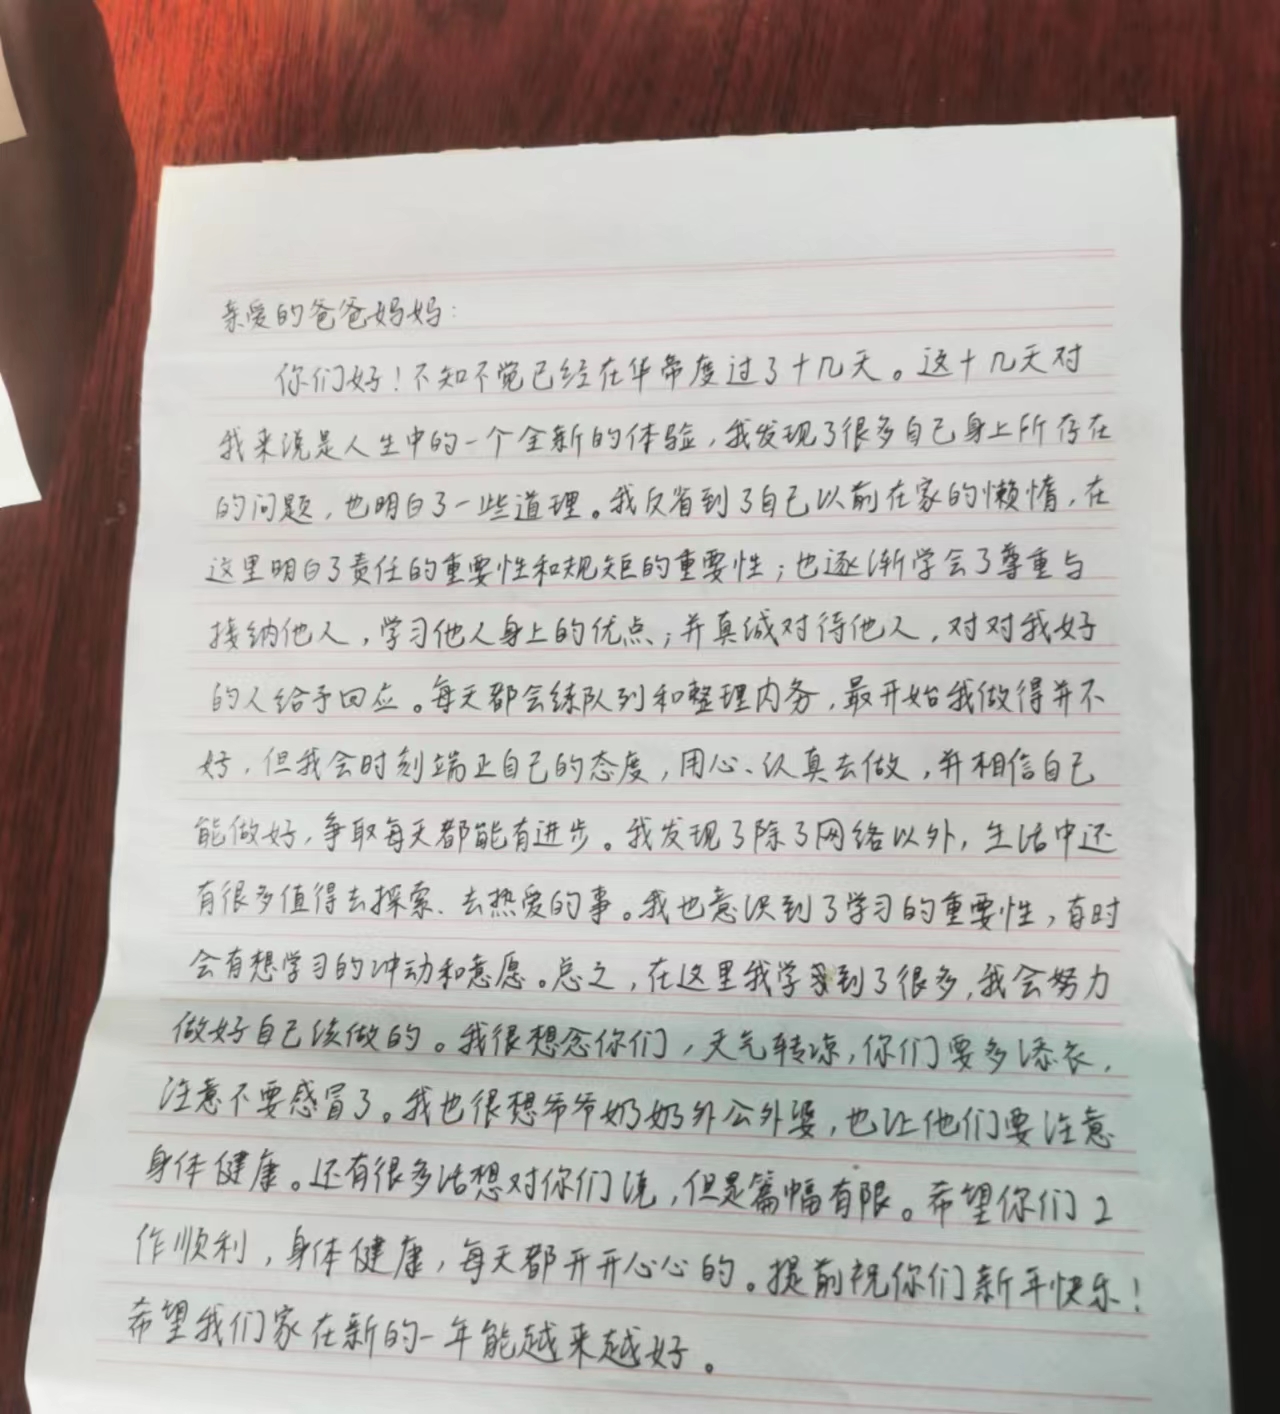 亲爱的爸爸妈妈:
你们好!不知不觉已经在华帝度过了十几天。这十几天对
我来说是人生中的一个全新的体验,我发现了很多自己身上所存在
的问题,也明白了一些道理。我反省到了自己以前在家的懒惰,在
这里明白了责任的重要性和规矩的重要性;也逐渐学会了尊重与
接纳他人,学习他人身上的优点;并真诚对待他人,对对我好
的人给予回应。每天都会练队列和整理内务,最开始我做得并不
好,但我会时刻端正自己的态度,用心、认真去做,并相信自己
能做好,争取每天都能有进步。我发现了除了网络以外,生活中还
有很多值得去探索、去热爱的事。我也意识到了学习的重要性,有时
会有想学习的冲动和意愿。总之,在这里我学到了很多,我会努力
做好自己该做的。我很想念你们,天气转凉,你们要多添衣,
注意不要感冒了。我也很想爷爷奶奶外公外婆,也让他们要注意
身体健康。还有很多话想对你们说,但是篇幅有限。希望你们工
作顺利,身体健康,每天都开开心心的。提前祝你们新年快乐!
希望我们家在新的一年能越来越好。